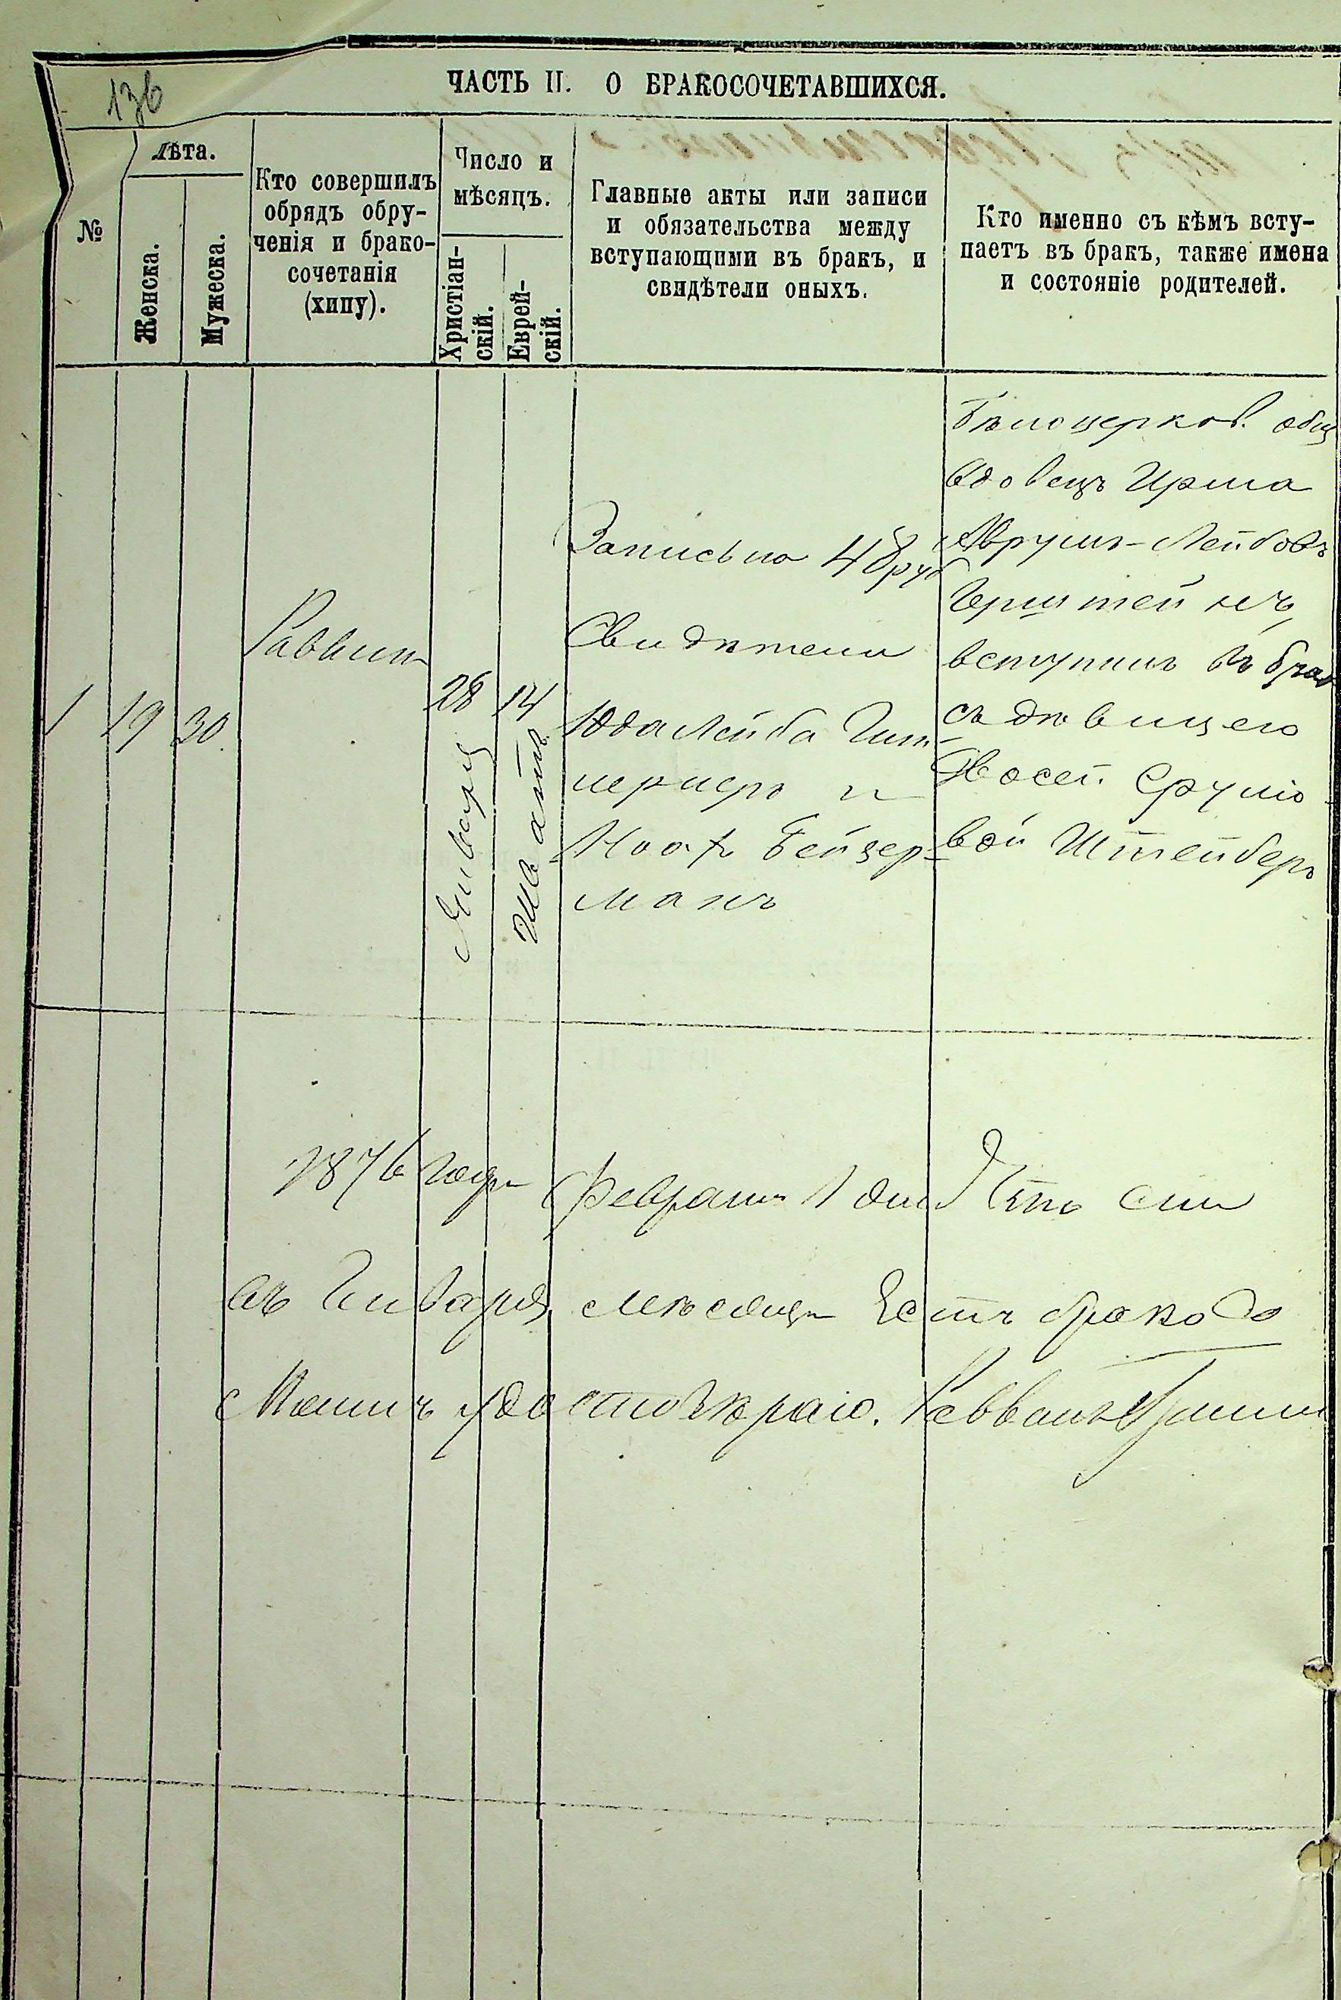 136
ЧАСТЬ II. О БРАКОСОЧЕТАВШИХСЯ.
№
Лѣта.
Женска.
Мужеска.
Кто совершилъ
обрядъ обру-
ченія и брако-
сочетанія
(хипу).
Число и
мѣсяцъ.
Христіан-
скій.
Еврей-
скій.
Главные акты или записи
и обязательства между
вступающими въ бракъ, и
свидѣтели оныхъ.
Кто именно съ кѣмъ всту-
паетъ въ бракъ, также имена
и состояніе родителей.
1
19
30
Раввинъ
28
Января
14
Шватъ
Запись на 48 руб
Свидѣтели
Юда Лейба
и
Бейдер-
манъ
Бѣлоцерков. общ
вдовецъ
Аврумъ-Лейбовъ
вступилъ въ бракъ
съ дѣвицею
Срулю-
вой Штейнберъ
1876 года Февраля 1 дня
въ Января мѣсяцѣ
удостовѣряю.